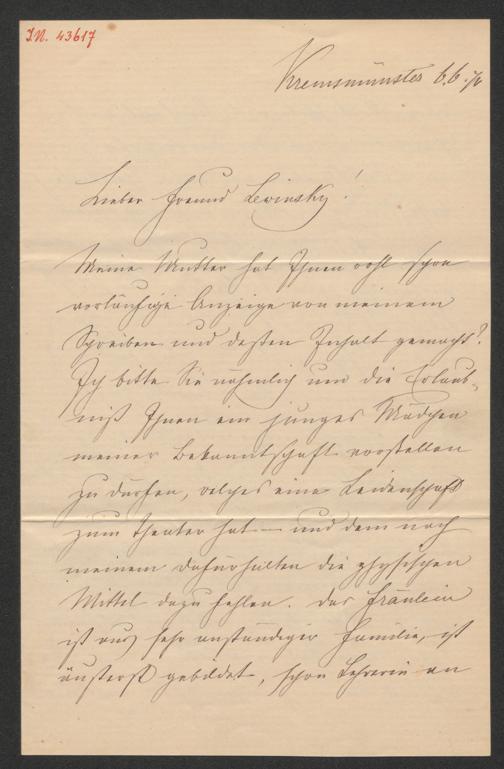 I.N. 43617
Kremsmünster 6.6.
Lieber Freund Lewinsky!
Meine Mutter hat Ihnen wohl schon
vorläufige Anzeige von meinem
Schreiben und deßen Inhalt gemacht?
Ich bitte Sie nähmlich um die Erlaub-
niß Ihnen ein junges Mädchen
meiner Bekanntschaft vorstellen
zu dürfen, welches eine Leidenschaft
zum Theater hat – und dem nach
meinem Dafürhalten die physischen
Mittel dazu fehlen. Das Fräulein
ist aus sehr anständiger Familie, ist
äußerst gebildet, schon Lehrerin an